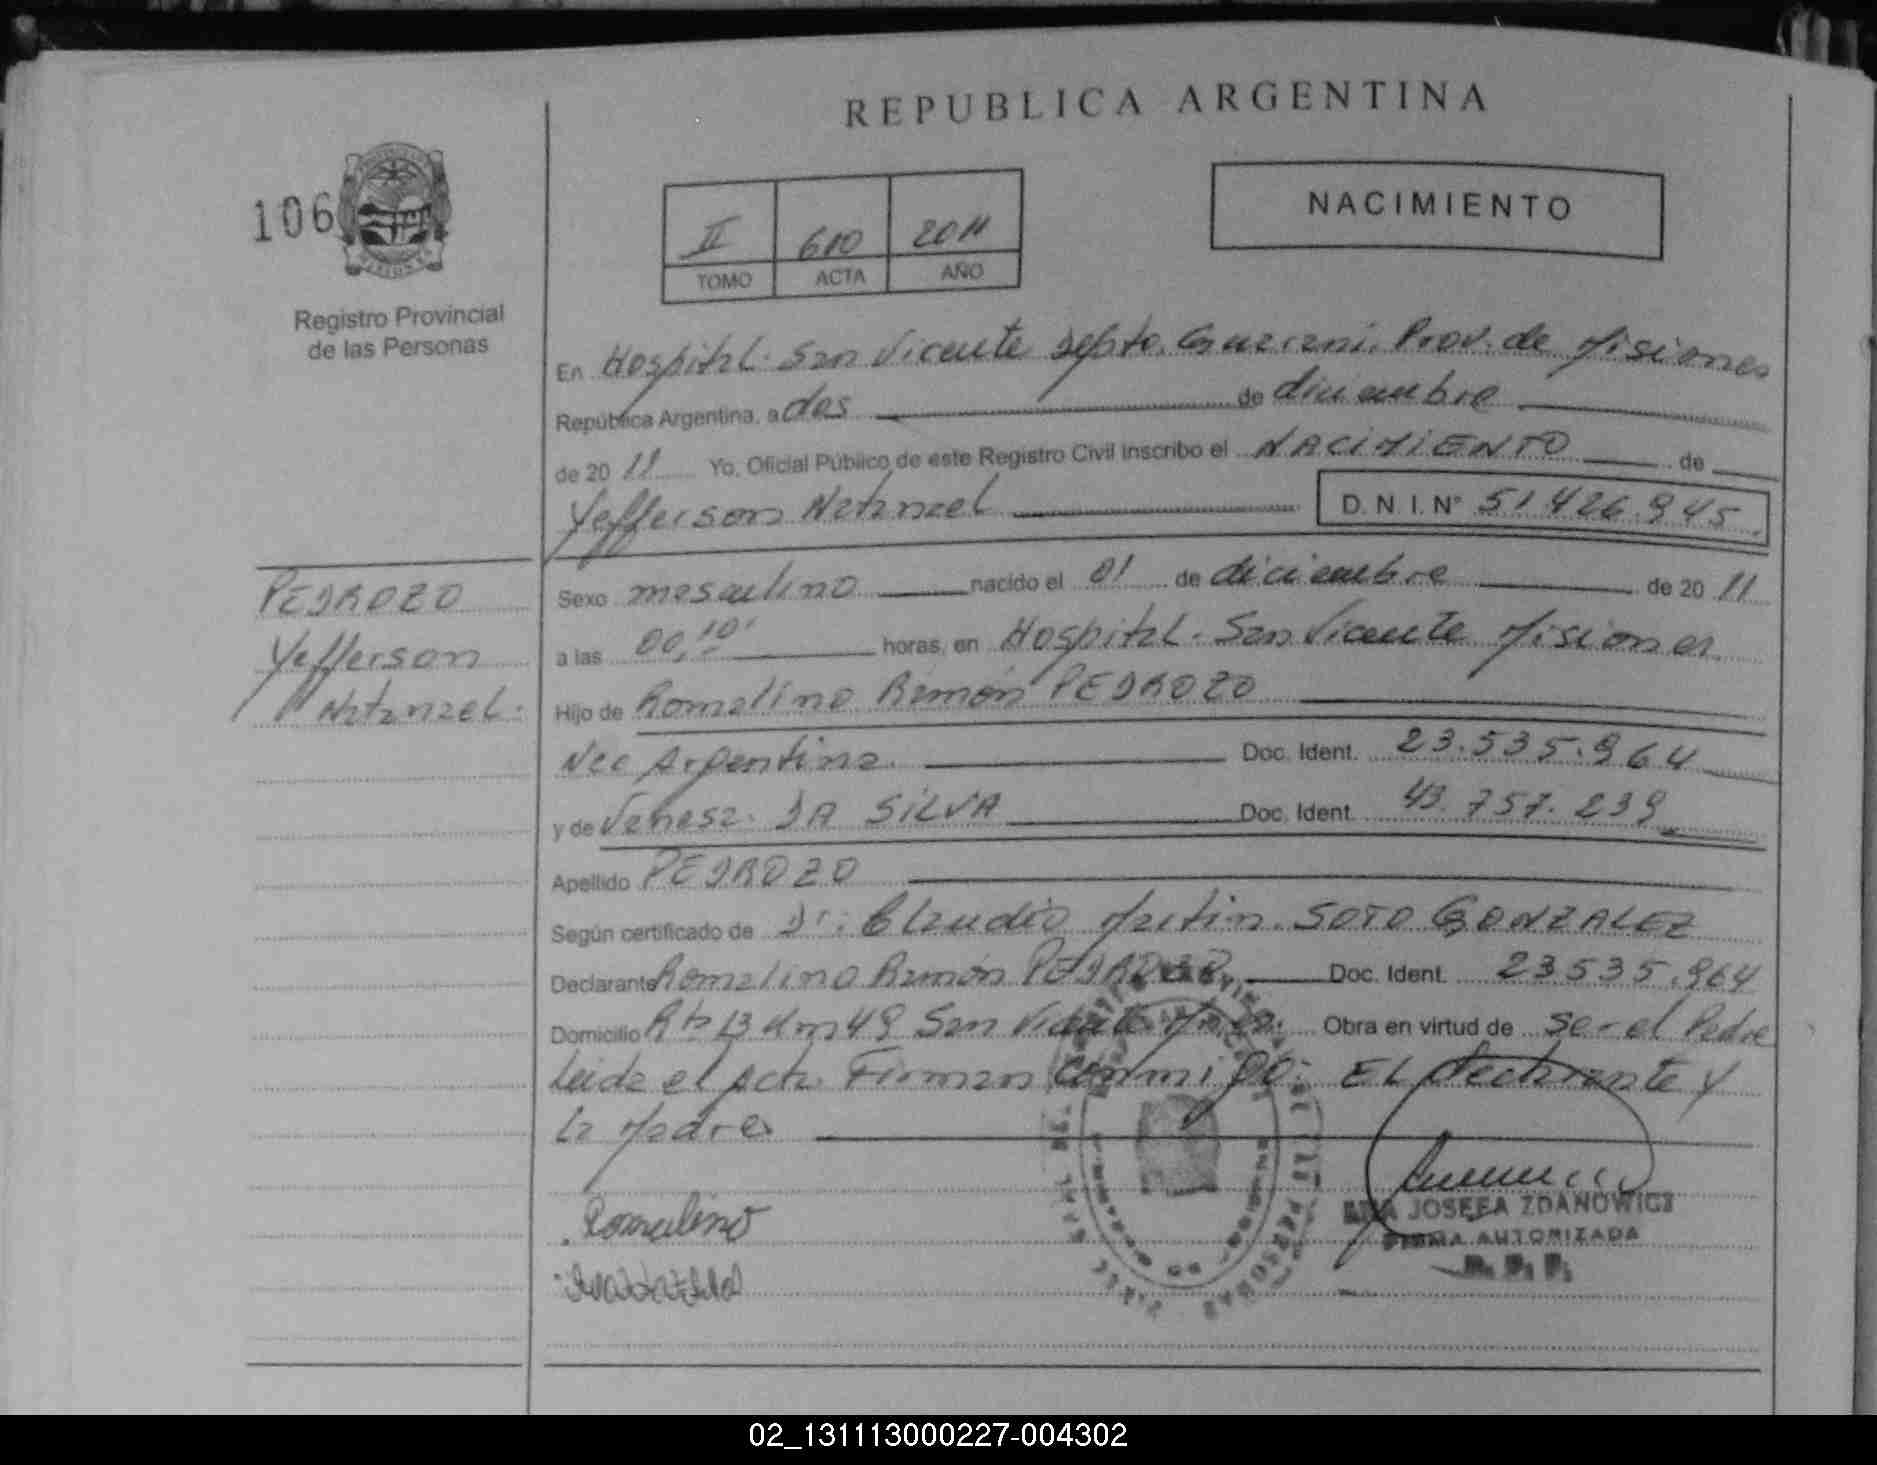 REPUBLICA ARGENTINA
106
NACIMIENTO
II 610 2011
TOMO ACTA AÑO
Registro Provincial
de las Personas
En Hospital. San Vicente Depto. Guarani. Prov. de Misiones
República Argentina, a dos de diciembre
de 20 11 Yo, Oficial Público de este Registro Civil inscribo el NACIMIENTO de
Yefferson Natanael D. N. I. N° 51.426.945
PEDROZO
Yefferson
Natanael.
Sexo masculino nacido el 01 de diciembre de 20 11
a las 00,10' horas, en Hospital. San Vicente Misiones
Hijo de Romalino Ramón PEDROZO
Nac Argentina. Doc. Ident. 23.535.964
y de Vanesa. DA SILVA Doc. Ident. 43.757.239
Apellido PEDROZO
Según certificado de Dr: Claudio Martin. SOTO GONZALEZ
Declarante Romalino Ramón PEDROZO Doc. Ident. 23535.964
Domicilio Rta 13 Km 49 San Vicente Obra en virtud de ser el Padre
Leida el Acta Firman conmigo: EL declarante y
la Madre
Romalino
JOSEFA ZDANOWICZ
FIRMA AUTORIZADA
02_131113000227-004302